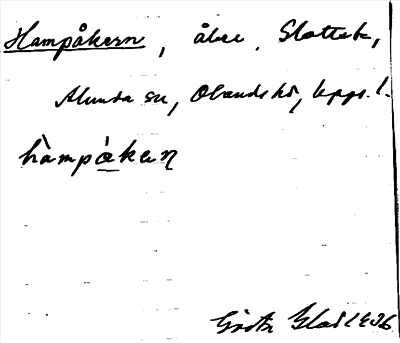 Hampåkern, åker, Slottet,
Alunda sn, Olands hd, Upps. l.
hàmpå̀keṇ
Gösta Glad 1936